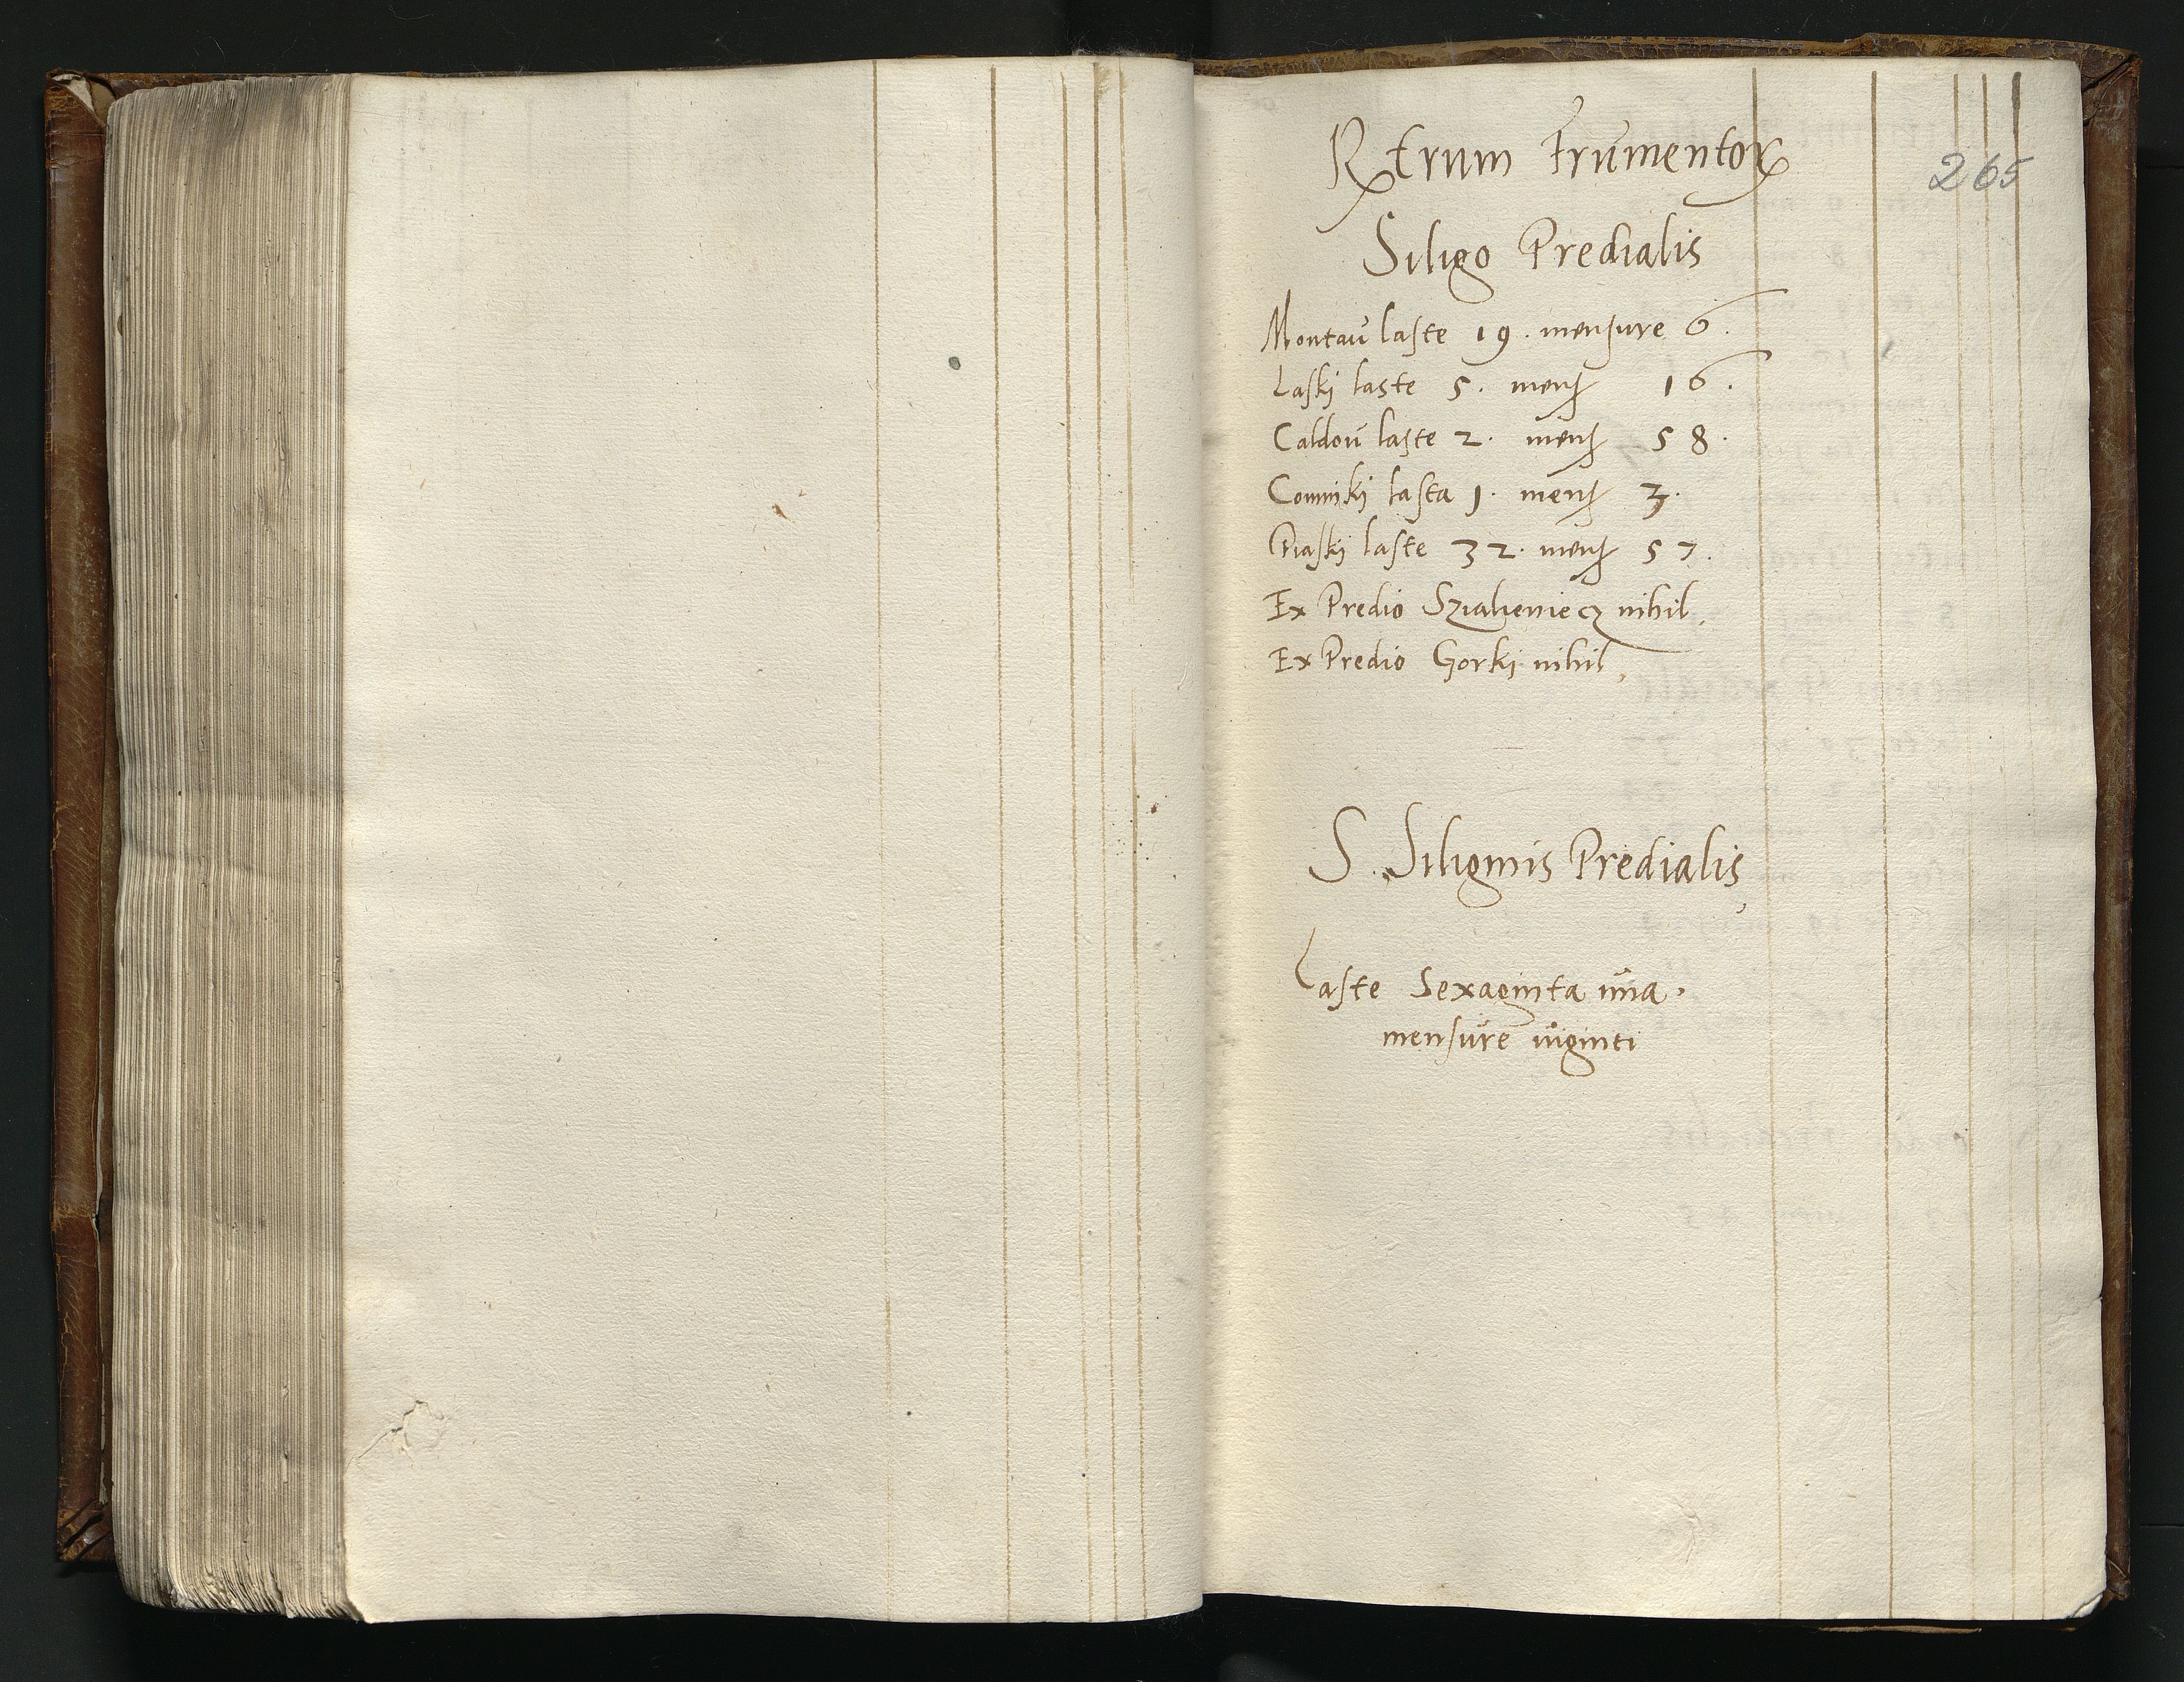 265
Rx̄trum Frumentoꝝ
Siligo Predialis
Montaŭ laste 19. mensure 6.
Laski laste 5. mensꝭ 16.
Caldoŭ laste 2. mensꝭ 58.
Comniki lasta 1. mensꝭ 3.
Piaski laste 32. mensꝭ 57.
Ex Predio Szialieniecz nihil.
Ex Predio Gorki nihil.
S. Siliginis Predialis
Laste Sexaginta una.
mensure uiginti